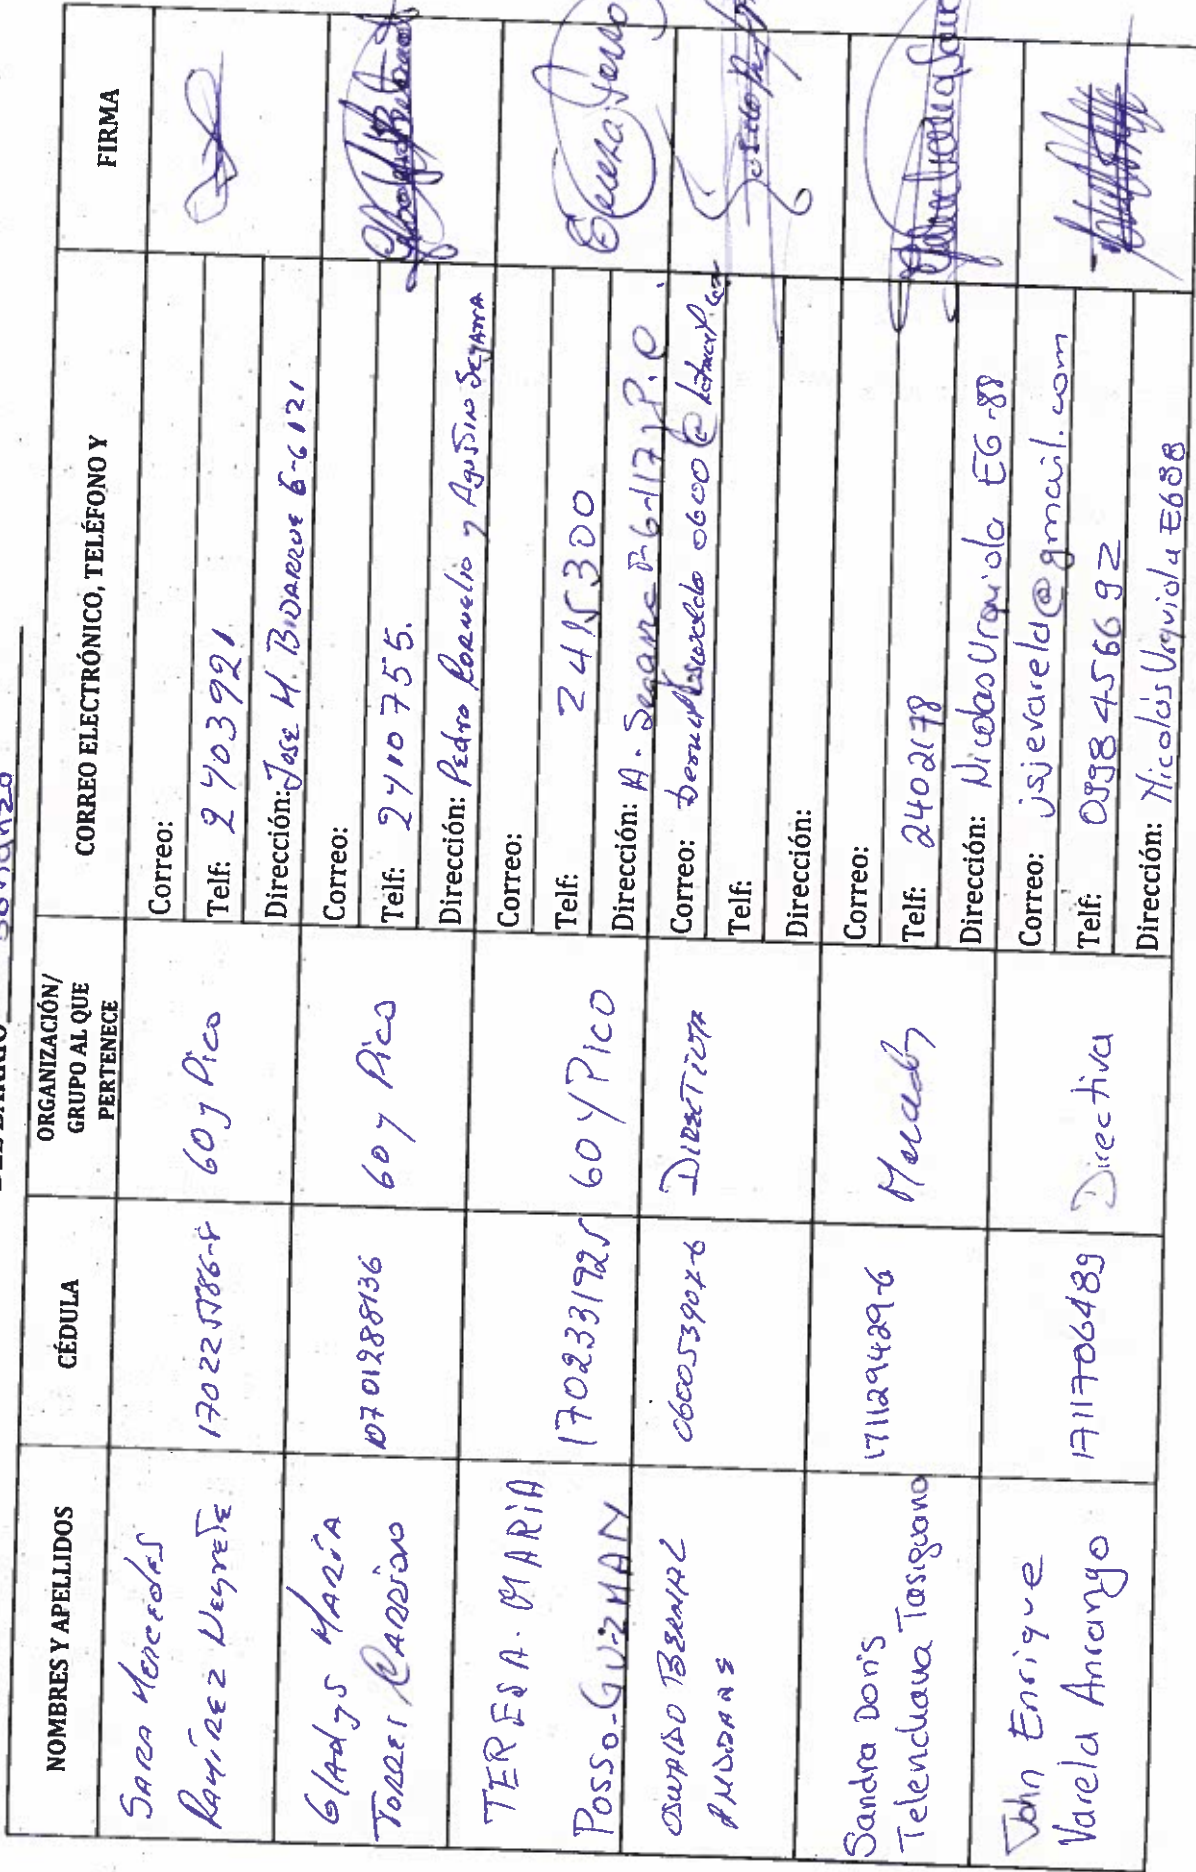 DEL BARRIO Solanzo
NOMBRES Y APELLIDOS
CÉDULA
ORGANIZACIÓN/
GRUPO AL QUE
PERTENECE
CORREO ELECTRÓNICO, TELÉFONO Y
FIRMA
SARA MERCEDES
RAMÍREZ NEGRETE
60 y Pico
Correo:
Telf: 2403921
Dirección: JOSE M.
GLADYS MARÍA
TORRES CARRION
0701288136
60 y Pico
Correo:
Telf: 2410755.
Dirección: PEDRO CORNELIO y AGUSTIN SEGAMA
TERESA MARIA
POSSO-GUZMAN
1702331925
60 Y PICO
Correo:
Telf: 2415300
Dirección: A.
OSWALDO BERNAL
DIRECTIVA
Correo:
Telf:
Dirección:
Sandra Doris
Telenchana Tasiguano
171129429-6
Mercado
Correo:
Telf: 2402178
Dirección: Nicolas Urquiola E6-88
John Enrique
Varela Anrango
1711706489
Directiva
Correo: jsjevareld@gmail.com
Telf: 0998456692
Dirección: Nicolás Urquiola E688